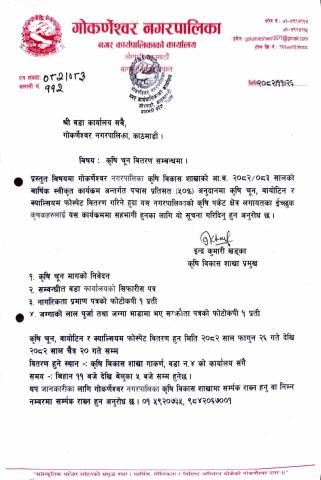 गोकर्णेश्वर नगरपालिका
नगर कार्यपालिकाको कार्यालय
पत्र संख्याः ०८२/०८३
चलानी नं. ९९२
श्री वडा कार्यालय सबै,
गोकर्णेश्वर नगरपालिका, काठमाडौं ।
विषय : कृषि चून वितरण सम्बन्धमा ।
प्रस्तुत विषयमा गोकर्णेश्वर नगरपालिका कृषि विकास शाखाको आ.व. २०८२/०८३ सालको
बार्षिक स्वीकृत कार्यक्रम अन्तर्गत पचास प्रतिसत (५०%) अनुदानमा कृषि चून, बायोटिन र
क्याल्सियम फोस्पेट वितरण गरिने हुदा यस नगरपालिकाको कृषि पकेट क्षेत्र लगायतका ईच्छुक
कृषकहरुलाई यस कार्यक्रममा सहभागी हुनका लागि यो सूचना गरिदिनु हुन अनुरोध छ ।
इन्द्र कुमारी खड्का
कृषि विकास शाखा प्रमुख
१. कृषि चून मागको निवेदन
२. सम्वन्धीत वडा कार्यालयको सिफारीस पत्र
३. नागरिकता प्रमाण पत्रको फोटोकपी १ प्रती
४. जग्गाको लाल पुर्जा तथा जग्गा भाडामा भए सम्झौता पत्रको फोटोकपी १ प्रती
कृषि चून, बायोटिन र क्याल्सियम फोस्पेट वितरण हुन मिति २०८२ साल फागुन २६ गते देखि
२०८२ साल चैत्र २० गते सम्म
वितरण हुने स्थान -: कृषि विकास शाखा गाकर्ण, वडा न.४ को कार्यालय संगै
समय -: बिहान ११ बजे देखि बेलुका ५ बजे सम्म हुनेछ ।
थप जानकारीका लागि गोर्कर्णेश्वर नगरपालिका कृषि विकास शाखामा सर्म्पक राख्न हुनु वा निम्न
नम्बरमा सर्म्पक राख्न हुन अनुरोध छ । ०१ ५९२०७३५, ९८४२०६७००१